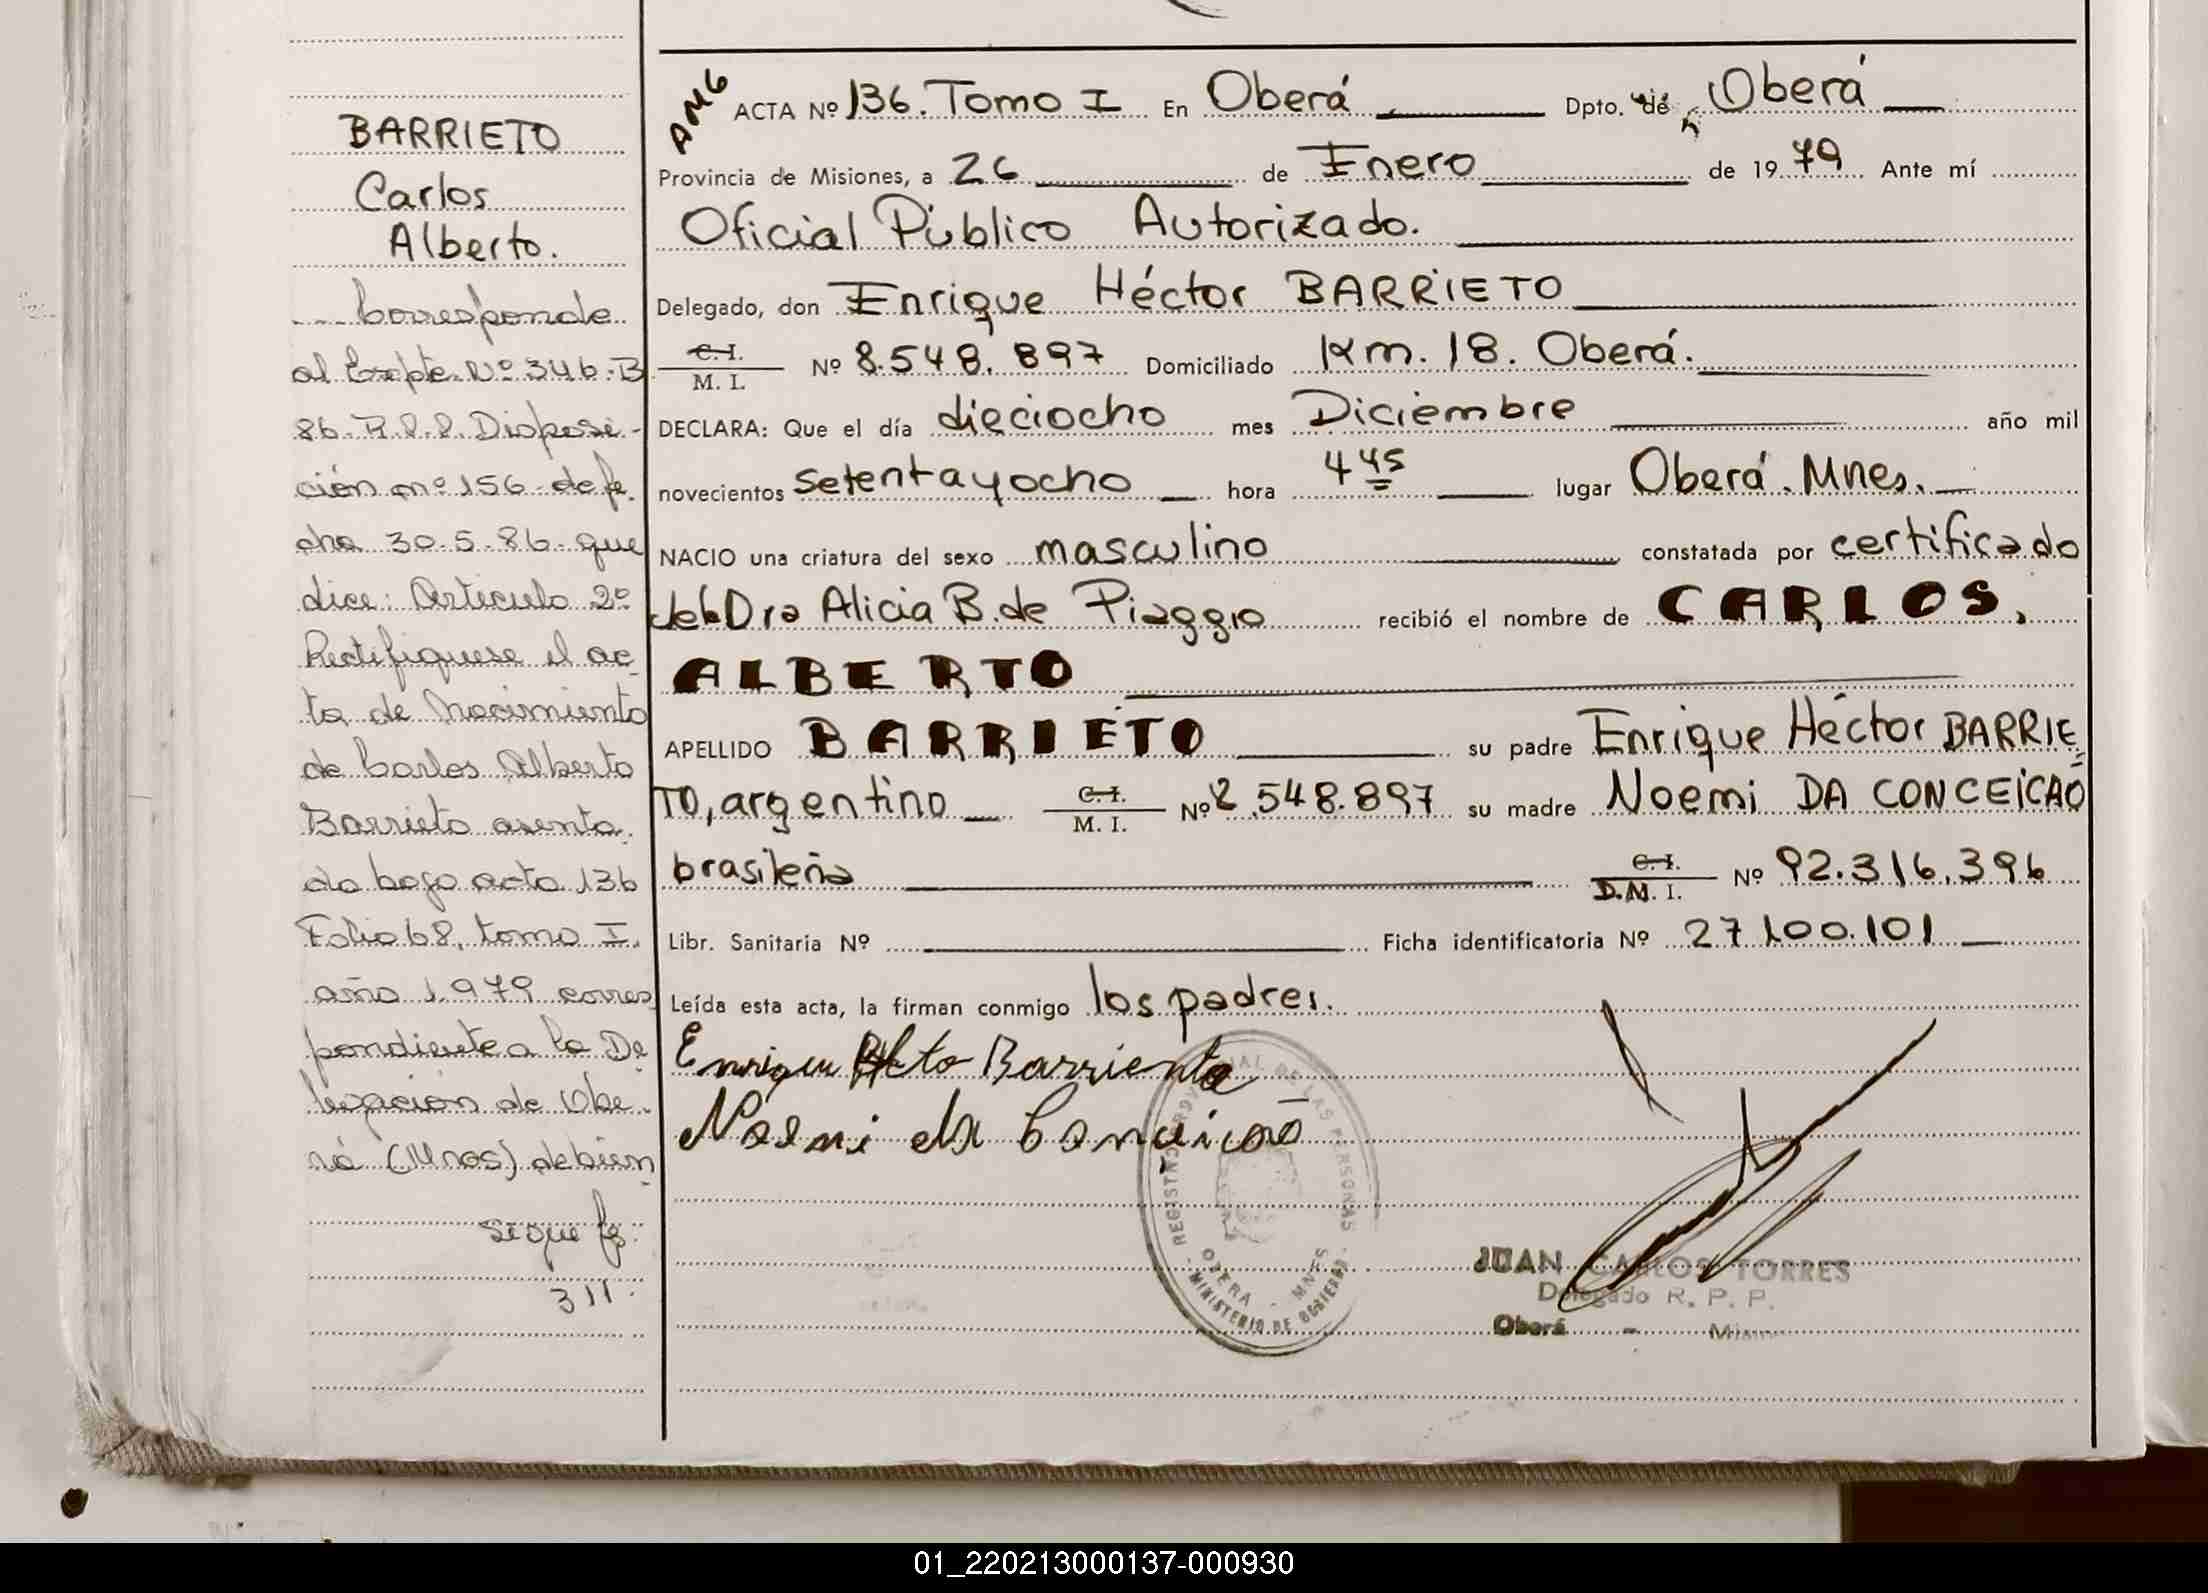 BARRIETO
Carlos
Alberto.
--- Corresponde
al Expte. Nº 346-B
86-R.P.P. Disposi-
ción nº 156 de fe
cha 30.5.86- que
dice: Articulo 2º
Rectifiquese el ac-
ta de Nacimiento
de Carlos Alberto
Barrieto asenta
da bajo acta 136
Folio 68, tomo I.
año 1.979 corres
pondiente a la De
legación de Obe-
rá (Mnes) debien
sigue fs.
311.
ACTA Nº 136. Tomo I En Oberá Dpto. de Oberá
Provincia de Misiones, a 26 de Enero de 1979 Ante mí
Oficial Público Autorizado.
Delegado, don Enrique Héctor BARRIETO
C.I. / M. I. Nº 8.548.897 Domiciliado Km. 18. Oberá.
DECLARA: Que el día dieciocho mes Diciembre año mil
novecientos setentayocho hora 4 45 lugar Oberá. Mnes.
NACIO una criatura del sexo masculino constatada por certificado
de la Dra Alicia B. de Piaggio recibió el nombre de CARLOS,
ALBERTO
APELLIDO BARRIETO su padre Enrique Héctor BARRIE
TO, argentino C.I. / M. I. Nº 8.548.897 su madre Noemi DA CONCEICAÕ
brasileña C.I. / D.M. I. Nº 92.316.396
Libr. Sanitaria Nº Ficha identificatoria Nº 27.100.101
Leída esta acta, la firman conmigo los padres.
Barriento
Noemi da Conceicaõ
REGISTRO PROVINCIAL DE LAS PERSONAS
OBERA - MNES
MINISTERIO DE GOBIERNO
JUAN CARLOS TORRES
Delegado R. P. P.
Oberá -
01_220213000137-000930